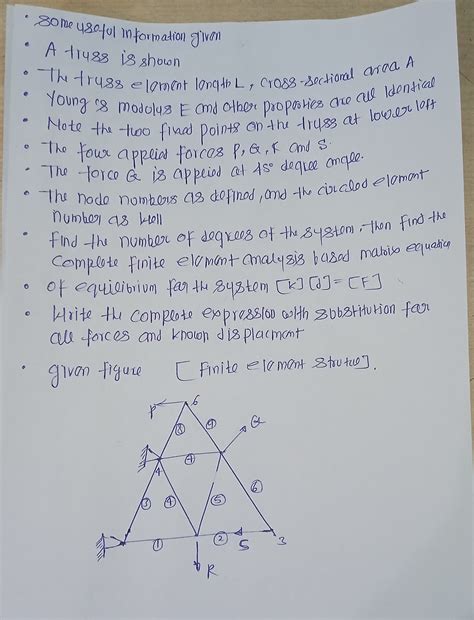 • some useful information given
• A truss is shown
• The truss element length L, cross-sectional area A
• Young's modulus E and other properties are all Identical
• Note the two fixed points on the truss at lower left
• The four applied forces P, Q, R and S.
• The force Q is applied at 45° degree angle.
• The node numbers as defined, and the circled element
number as well
• Find the number of degrees of the system, then find the
complete finite element analysis based matrix equation
• of equilibrium for the system [K] [d] = [F]
• Write the complete expression with substitution for
all forces and known displacment
• given figure [Finite element strutue].
P 6
Q
4
1 2 S 3
R